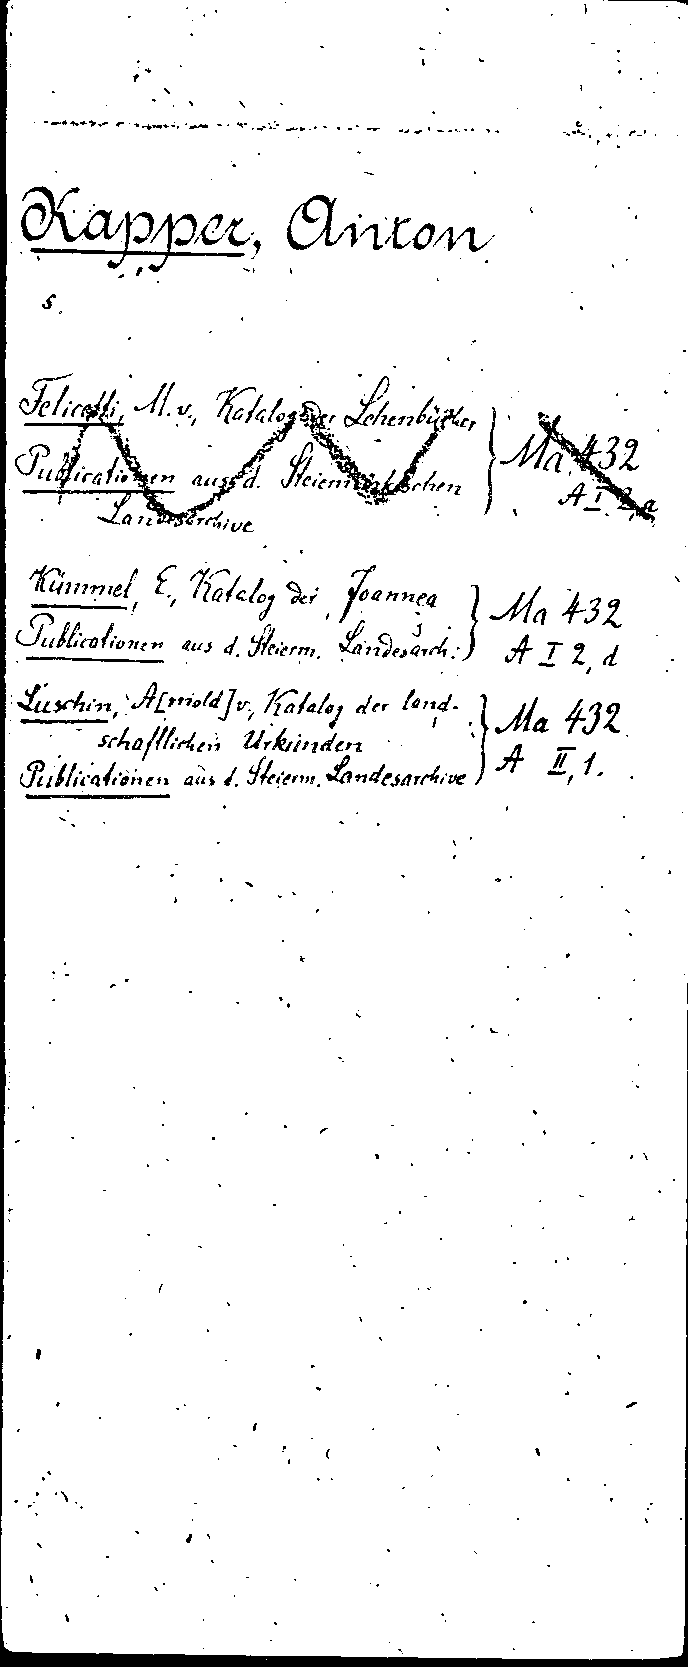 Kapper, Anton
s.
Felicetti, M. v., Katalog der Lehenbücher
Ma 432
Publicationen aus d. Steiermärkischen
A I 2, a
Landesarchive
Kümmel, E., Katalog der Joannea
Ma 432
Publicationen aus d. Steierm. Landesarch.
A I 2, d
Luschin, A[rnold] v., Katalog der land-
schaftlichen Urkunden
Ma 432
Publicationen aus d. Steierm. Landesarchive
A II, 1.